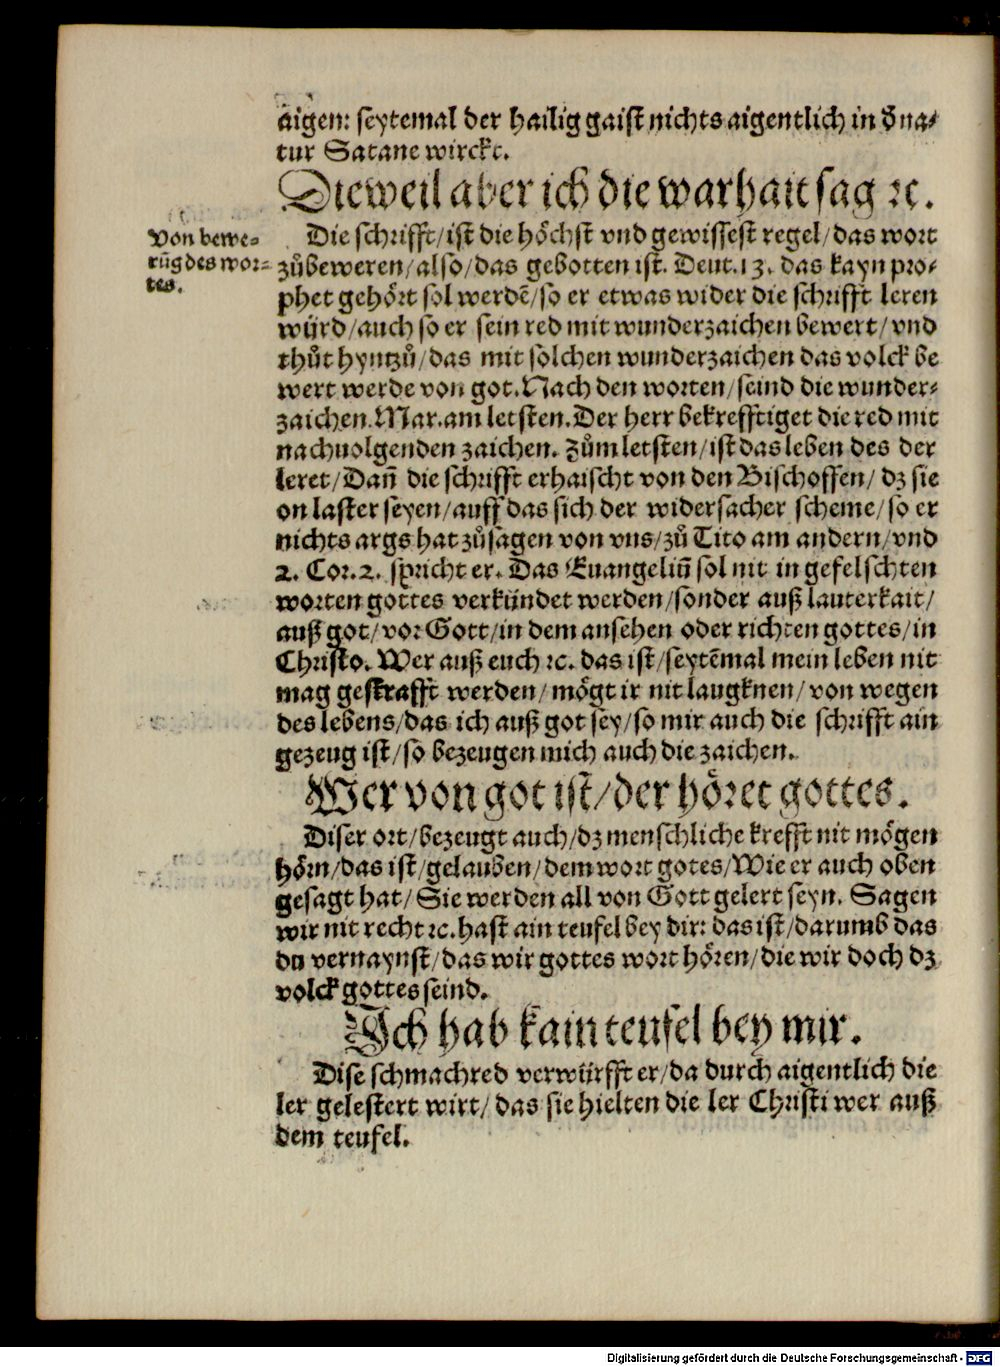 aigen: seytemal der hailig gaist nichts aigentlich in d̕ na⸗
tur Satane wirckt.
Dieweil aber ich die warhait sag ꝛc.
Von bewe⸗
rūg des wor⸗
tes.
Die schrifft/ist die hoͤchst vnd gewissest regel/das wort
zůbeweren/also/das gebotten ist. Deut.13. das kayn pro⸗
phet gehoͤrt sol werdē/so er etwas wider die schrifft leren
würd/auch so er sein red mit wunderzaichen bewert/vnd
thůt hyntzů/das mit solchen wunderzaichen das volck be
wert werde von got. Nach den worten/seind die wunder⸗
zaichen. Mar. am letsten. Der herr bekrefftiget die red mit
nachuolgenden zaichen. Zům letsten/ist das leben des der
leret/Dañ die schrifft erhaischt von den Bischoffen/dz sie
on laster seyen/auff das sich der widersacher scheme/so er
nichts args hat zůsagen von vns/zů Tito am andern/vnd
2. Cor.2. spricht er. Das Euangeliū sol nit in gefelschten
worten gottes verkündet werden/sonder auß lauterkait/
auß got/vor Gott/in dem ansehen oder richten gottes/in
Christo. Wer auß euch ꝛc. das ist/seytēmal mein leben nit
mag gestrafft werden/moͤgt ir nit laugknen/von wegen
des lebens/das ich auß got sey/so mir auch die schrifft ain
gezeug ist/so bezeugen mich auch die zaichen.
Wer von got ist/der hoͤret gottes.
Diser ort/bezeugt auch/dz menschliche krefft nit moͤgen
hoͤrn/das ist/gelauben/dem wort gotes/Wie er auch oben
gesagt hat/Sie werden all von Gott gelert seyn. Sagen
wir nit recht ꝛc. hast ain teufel bey dir: das ist/darumb das
du vernaynst/das wir gottes wort hoͤren/die wir doch dz
volck gottes seind.
Ich hab kain teufel bey mir.
Dise schmachred verwürfft er/da durch aigentlich die
ler gelestert wirt/das sie hielten die ler Christi wer auß
dem teufel.
Digitalisierung gefördert durch die Deutsche Forschungsgemeinschaft - DFG